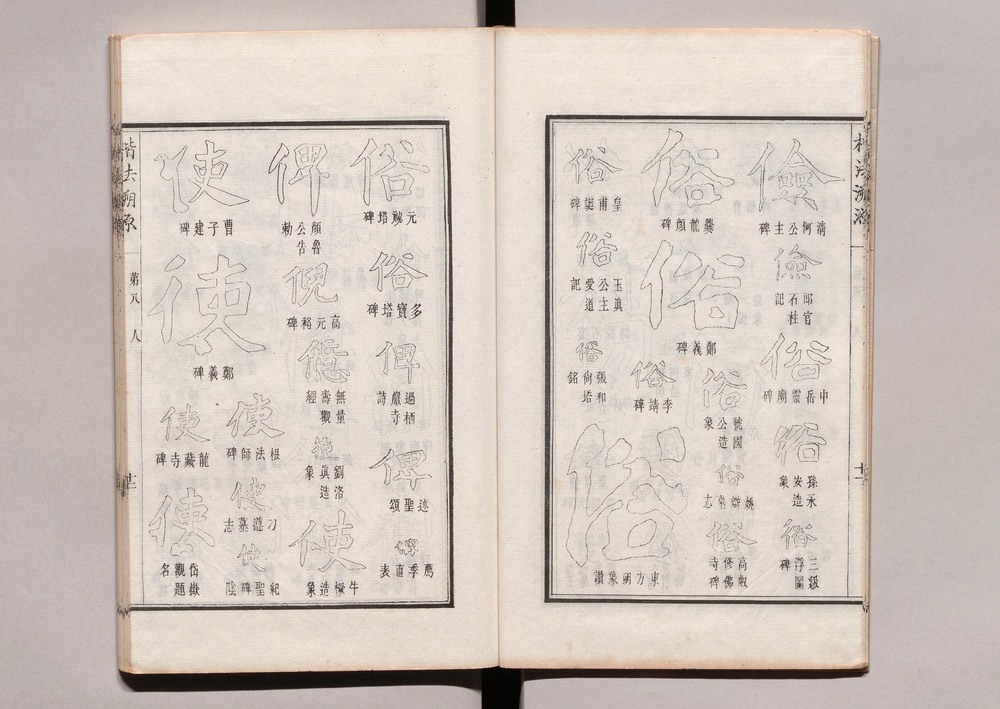 楷法溯源
十二
儉
清河公主碑
儉
邸官石柱記
俗
中岳靈廟碑
俗
孫永安造象
俗
三級浮圖碑
俗
爨龍顏碑
俗
鄭羲碑
俗
虢國公造象
俗
李靖碑
俗
姚辯墓志
俗
高叡修佛寺碑
俗
皇甫誕碑
俗
玉眞公主受道記
俗
張和尙塔銘
俗
東方朔象讚
俗
元祕塔碑
俗
多寶塔碑
俾
過栖巖寺詩
俾
述聖頌
俾
薦季直表
俾
顏魯公告勅
倪
高元裕碑
億
無量壽觀經
劉洛眞造象
使
牛橛造象
使
曹子建碑
使
鄭羲碑
使
根法師碑
使
刁遵墓志
使
紀聖碑陰
使
龍藏寺碑
使
岱嶽觀題名
楷法溯源
第八 人
十二